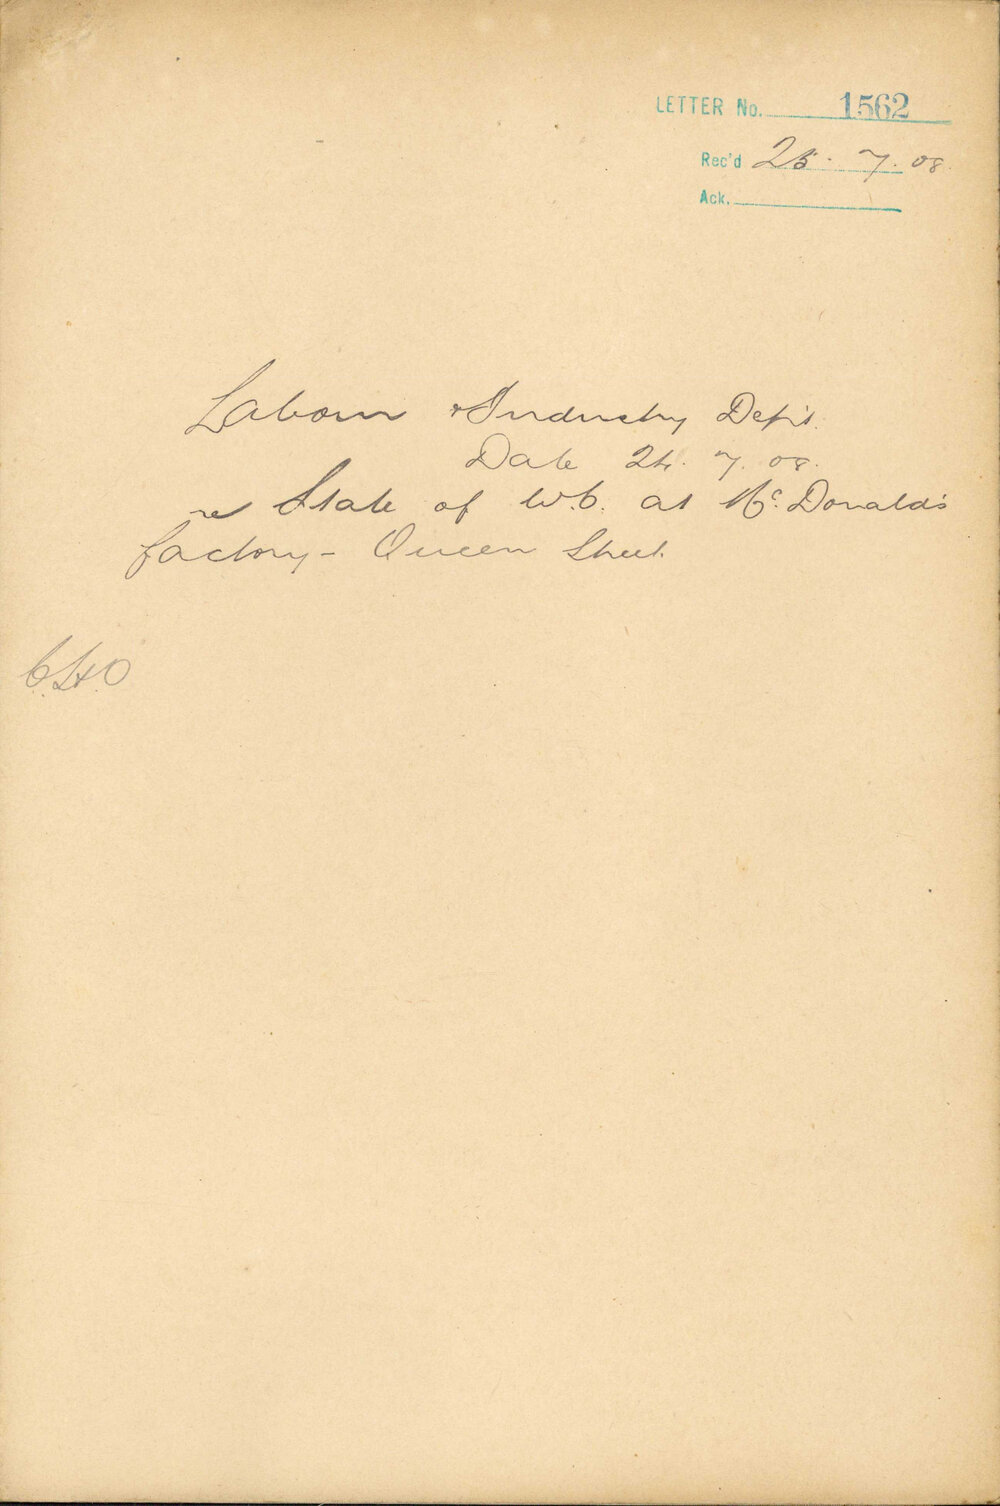 LETTER No. 1562
Rec'd 25. 7. 08.
Ack.
Labour & Industry Dept.
Date 24. 7. 08.
re State of W.C. at Mc.Donald's
factory - Queen Street.
C.H.O